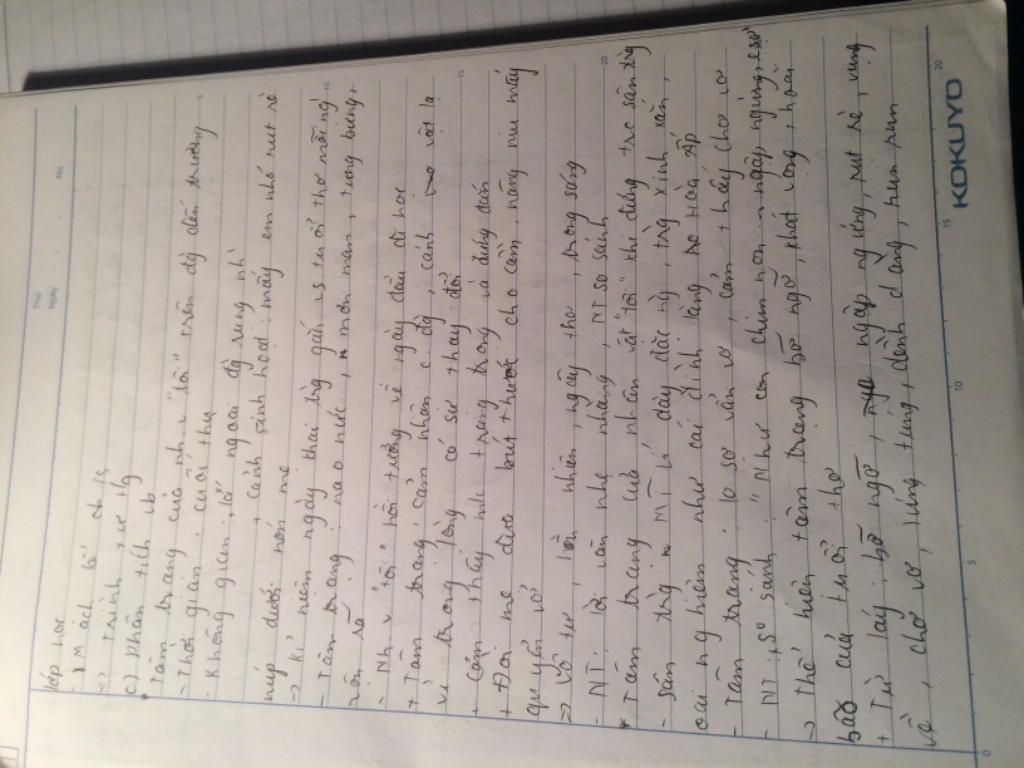 Thứ
Ngày
No.
lớp học
- Mạch
-> trình tự tg
c) Phân tích vb
* Tâm trạng của nh v "tôi" trên đg đến trường
- Thời gian: cuối thu
- Không gian: lá ngoài đg rụng nh`
+ cảnh sinh hoạt: mấy em nhỏ rụt rè
núp dưới nón mẹ
-> Kỉ niệm ngày khai trg gắn vs tuổi thơ mỗi ng`
- Tâm trạng: nao nức, mơn man, tưng bừng,
rộn rã
- Nh v "tôi" hồi tưởng về ngày đầu đi học
+ Tâm trạng, cảm nhận: c đg, cảnh vật lạ
vì trong lòng có sự thay đổi
+ Cảm thấy mh trang trọng và đứng đắn
+ Đòi mẹ đưa bút thước cho cầm, nâng niu mấy
quyển vở
=> Vô tư, hồn nhiên, ngây thơ, trong sáng
- NT: lời văn nhẹ nhàng, NT so sánh
* Tâm trạng của nhân vật "tôi" khi đứng trc sân trg
- Sân trg ML dày đặc ng`, trg xinh xắn,
oai nghiêm như cái đình làng Hoà Ấp
- Tâm trạng: lo sợ vẩn vơ, cảm thấy chơ vơ
- NT: so sánh: "Như con chim non
-> Thể hiện tâm trạng bỡ ngỡ, khát vọng, hoài
bão của tuổi thơ
+ Từ láy: bỡ ngỡ, ngập ngừng, rụt rè, vụng
về, chơ vơ, lúng túng, dềnh dàng, run run
5
10
15
20
0
5
10
15
20
KOKUYO